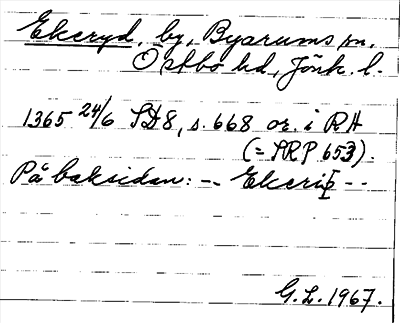 Ekeryd, by, Byarums sn.
Östbo hd, Jönk. l.
1365 24/6 SD8, s. 668 or. i RA
(= SRP 653).
På baksidan: -- Ekeriþ --
G.L. 1967.